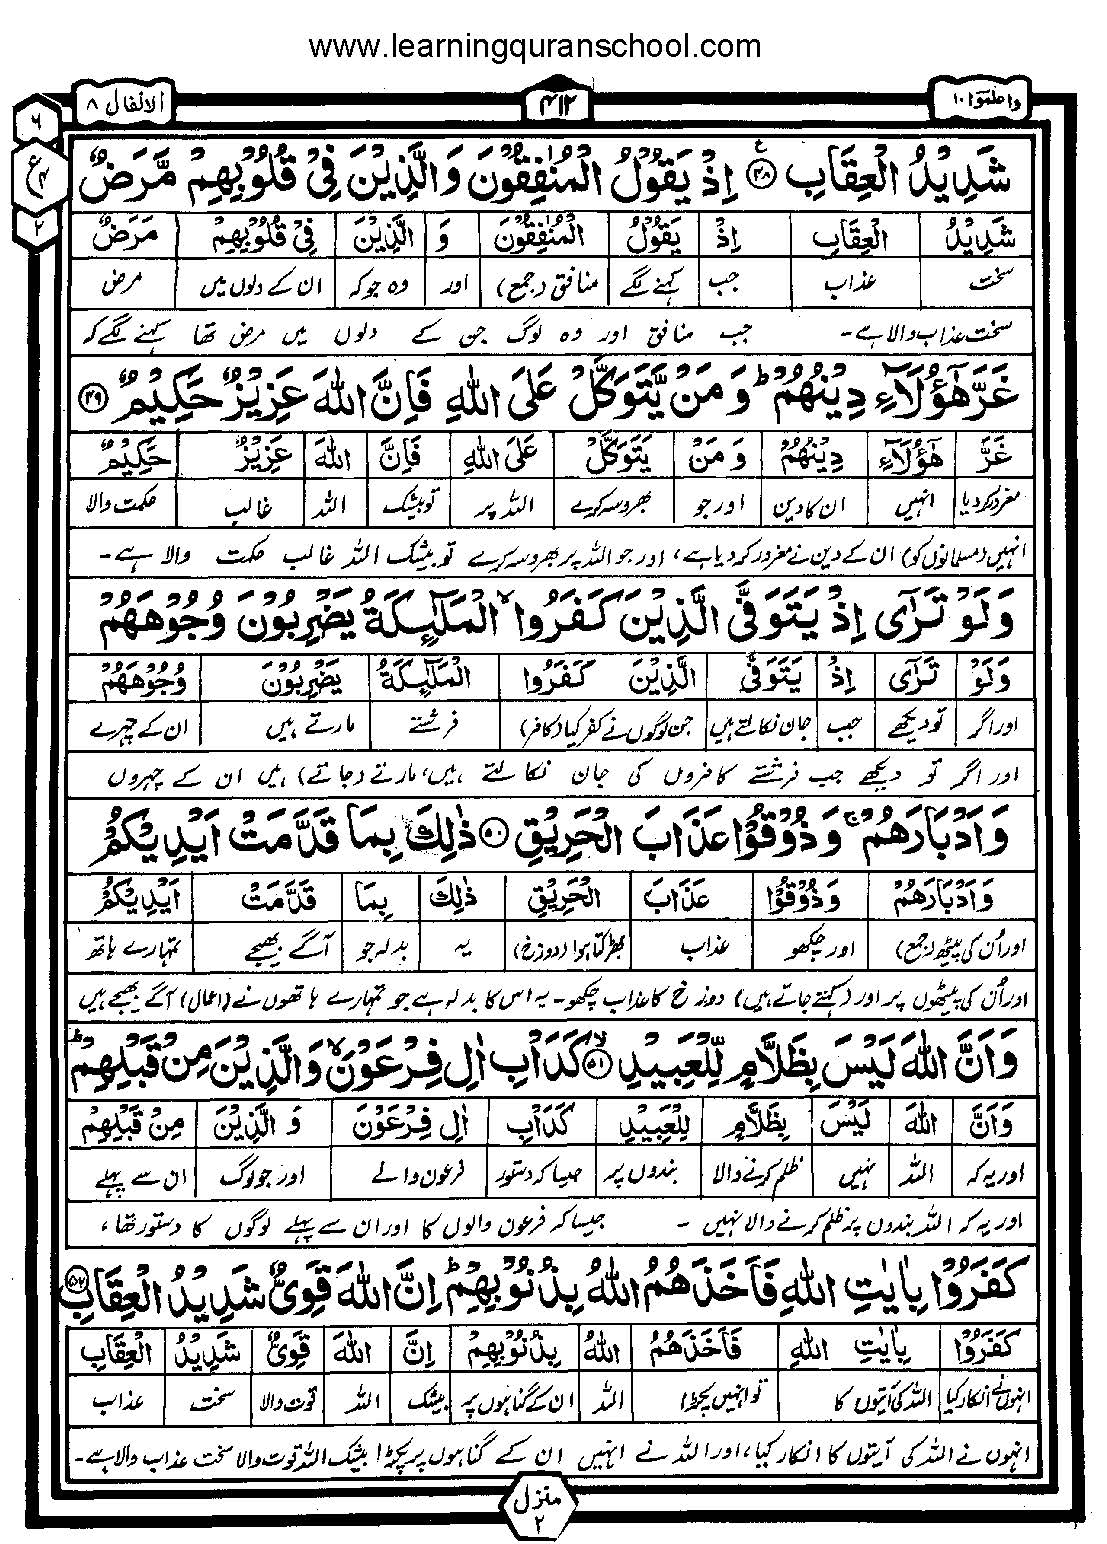 www.learningquranschool.com
واعلموا ۱۰
۴۱۲
الانفال ۸
۶
ع
۴
۲
شَدِيْدُ الْعِقَابِ ﴿۴۸﴾ اِذْ يَقُوْلُ الْمُنٰفِقُوْنَ وَالَّذِيْنَ فِيْ قُلُوْبِهِمْ مَّرَضٌ
شَدِيْدُ الْعِقَابِ اِذْ يَقُوْلُ الْمُنٰفِقُوْنَ وَ الَّذِيْنَ فِيْ قُلُوْبِهِمْ مَرَضٌ
سخت عذاب جب کہنے لگے منافق (جمع) اور وہ جو کہ ان کے دلوں میں مرض
سخت عذاب والا ہے۔ جب منافق اور وہ لوگ جن کے دلوں میں مرض تھا کہنے لگے کہ
غَرَّ هٰٓؤُلَآءِ دِيْنُهُمْ ؕ وَ مَنْ يَّتَوَكَّلْ عَلَى اللّٰهِ فَاِنَّ اللّٰهَ عَزِيْزٌ حَكِيْمٌ ﴿۴۹﴾
غَرَّ هٰٓؤُلَآءِ دِيْنُهُمْ وَ مَنْ يَتَوَكَّلْ عَلَى اللّٰهِ فَاِنَّ اللّٰهَ عَزِيْزٌ حَكِيْمٌ
مغرور کر دیا انہیں ان کا دین اور جو بھروسہ کرے اللہ پر تو بیشک اللہ غالب حکمت والا
انہیں (مسلمانوں کو) ان کے دین نے مغرور کر دیا ہے، اور جو اللہ پر بھروسہ کرے تو بیشک اللہ غالب حکمت والا ہے۔
وَلَوْ تَرٰٓى اِذْ يَتَوَفَّى الَّذِيْنَ كَفَرُوا ۙ الْمَلٰٓئِكَةُ يَضْرِبُوْنَ وُجُوْهَهُمْ
وَلَوْ تَرٰٓى اِذْ يَتَوَفَّى الَّذِيْنَ كَفَرُوا الْمَلٰٓئِكَةُ يَضْرِبُوْنَ وُجُوْهَهُمْ
اور اگر تو دیکھے جب جان نکالتے ہیں جن لوگوں نے کفر کیا (کافر) فرشتے مارتے ہیں ان کے چہرے
اور اگر تو دیکھے جب فرشتے کافروں کی جان نکالتے ہیں، مارتے (جاتے) ہیں ان کے چہروں
وَاَدْبَارَهُمْ ۚ وَذُوْقُوْا عَذَابَ الْحَرِيْقِ ﴿۵۰﴾ ذٰلِكَ بِمَا قَدَّمَتْ اَيْدِيْكُمْ
وَاَدْبَارَهُمْ وَذُوْقُوْا عَذَابَ الْحَرِيْقِ ذٰلِكَ بِمَا قَدَّمَتْ اَيْدِيْكُمْ
اور اُن کی پیٹھ (جمع) اور چکھو عذاب بھڑکتا ہوا (دوزخ) یہ بدلہ جو آگے بھیجے تمہارے ہاتھ
اور اُن کی پیٹھوں پر اور (کہتے جاتے ہیں) دوزخ کا عذاب چکھو۔ یہ اس کا بدلہ ہے جو تمہارے ہاتھوں نے (اعمال) آگے بھیجے ہیں
وَاَنَّ اللّٰهَ لَيْسَ بِظَلَّامٍ لِّلْعَبِيْدِ ﴿۵۱﴾ ۙ كَدَاْبِ اٰلِ فِرْعَوْنَ ۙ وَالَّذِيْنَ مِنْ قَبْلِهِمْ ؕ
وَاَنَّ اللّٰهَ لَيْسَ بِظَلَّامٍ لِلْعَبِيْدِ كَدَاْبِ اٰلِ فِرْعَوْنَ وَ الَّذِيْنَ مِنْ قَبْلِهِمْ
اور یہ کہ اللہ نہیں ظلم کرنے والا بندوں پر جیسا کہ دستور فرعون والے اور جو لوگ ان سے پہلے
اور یہ کہ اللہ بندوں پر ظلم کرنے والا نہیں۔ جیسا کہ فرعون والوں کا اور ان سے پہلے لوگوں کا دستور تھا،
كَفَرُوْا بِاٰيٰتِ اللّٰهِ فَاَخَذَهُمُ اللّٰهُ بِذُنُوْبِهِمْ ؕ اِنَّ اللّٰهَ قَوِيٌّ شَدِيْدُ الْعِقَابِ ﴿۵۲﴾
كَفَرُوْا بِاٰيٰتِ اللّٰهِ فَاَخَذَهُمُ اللّٰهُ بِذُنُوْبِهِمْ اِنَّ اللّٰهَ قَوِيٌّ شَدِيْدُ الْعِقَابِ
انہوں نے انکار کیا اللہ کی آیتوں کا تو انہیں پکڑا اللہ ان کے گناہوں پر بیشک اللہ قوت والا سخت عذاب
انہوں نے اللہ کی آیتوں کا انکار کیا، اور اللہ نے انہیں ان کے گناہوں پر پکڑا بیشک اللہ قوت والا سخت عذاب والا ہے۔
منزل
۲